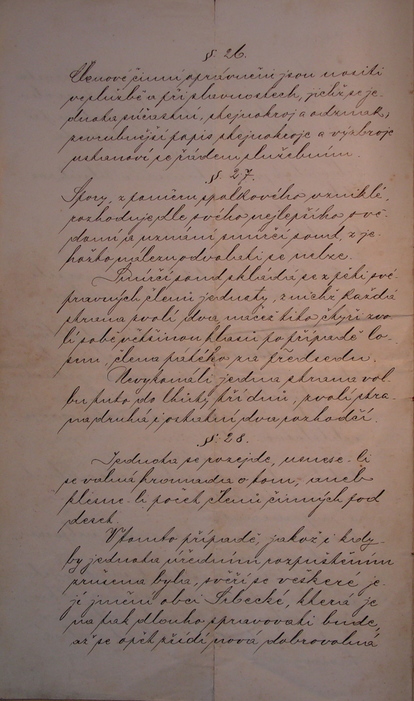 §. 26.
Členové činní oprávněni jsou nositi
ve službě a při slavnostech, jichž se je-
dnota súčastní, stejnokroj a odznak,
podrobnější popis stejnokroje a výzbroje
ustanoví se řádem služebním.
§. 27.
Spory, z poměru spolkového vzniklé,
rozhoduje dle svého nejlepšího svě-
domí a uznání smírčí soud, z je-
hož to nálezu odvolati se nelze.
Smírčí soud skládá se z pěti své-
právných členů jednoty, z nichž každá
strana zvolí dva, načež tito čtyři zvo-
lí sobě většinou hlasů po případě lo-
sem, člena pátého za předsedu.
Nevykoná-li jedna strana vol-
bu tuto do lhůty tří dnů, zvolí stra-
na druhá i ostatní dva rozhodčí.
§. 28.
Jednota se rozejde, usnese-li
se valná hromada o tom, aneb
klesne-li počet členů činných pod
deset.
V tomto případě, jakož i kdy-
by jednota úředním rozpuštěním
zrušena byla, svěří se veškeré je-
jí jmění obci Srbecké, která je
na tak dlouho spravovati bude,
až se opět zřídí nová dobrovolná